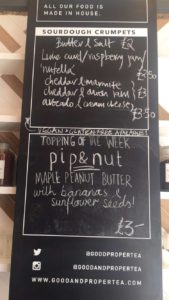 ALL OUR FOOD IS
MADE IN HOUSE.
SOURDOUGH CRUMPETS
Butter & Salt £2
Lime curd/raspberry jam/
nutella £3
cheddar & marmite £3.50
cheddar & onion jam
avocado & cream cheese £3.50
VEGAN + GLUTEN FREE AVAILABLE
TOPPING OF THE WEEK
pip&nut
MAPLE PEANUT BUTTER
with bananas &
sunflower seeds!
£3-
@GOODANDPROPERTEA
@GOODANDPROPERTEA
WWW.GOODANDPROPERTEA.COM